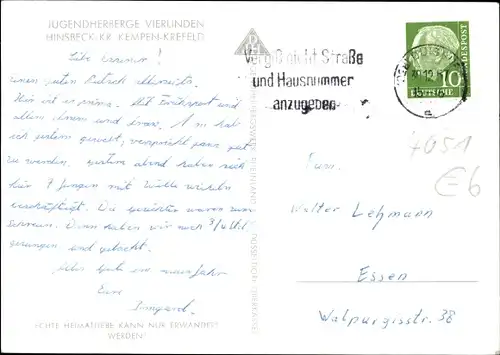 JUGENDHERBERGE VIERLINDEN
HINSBECK · KR. KEMPEN-KREFELD
Vergiß nicht Straße
und Hausnummer
anzugeben
10
DEUTSCHE
BUNDESPOST
Liebe !
einen guten Rutsch allerseits.
Hier ist es prima. Mit Frühsport und
allem drum und dran. A m hab
ich gestern gekocht, verspricht ganz gut
zu werden, gestern abend haben sich
hier 7 Jungen mit Wolle wickeln
beschäftigt. Die Gesichter waren zum
Schreien. Dann haben wir noch 3/4 Std.
gesungen und gelacht.
Alles Gute im neuen Jahr
Eure
Irmgard.
Fam.
Walter Lehmann
Essen
Walpurgisstr. 38
7051
€6
„ECHTE HEIMATLIEBE KANN NUR ERWANDERT
WERDEN"